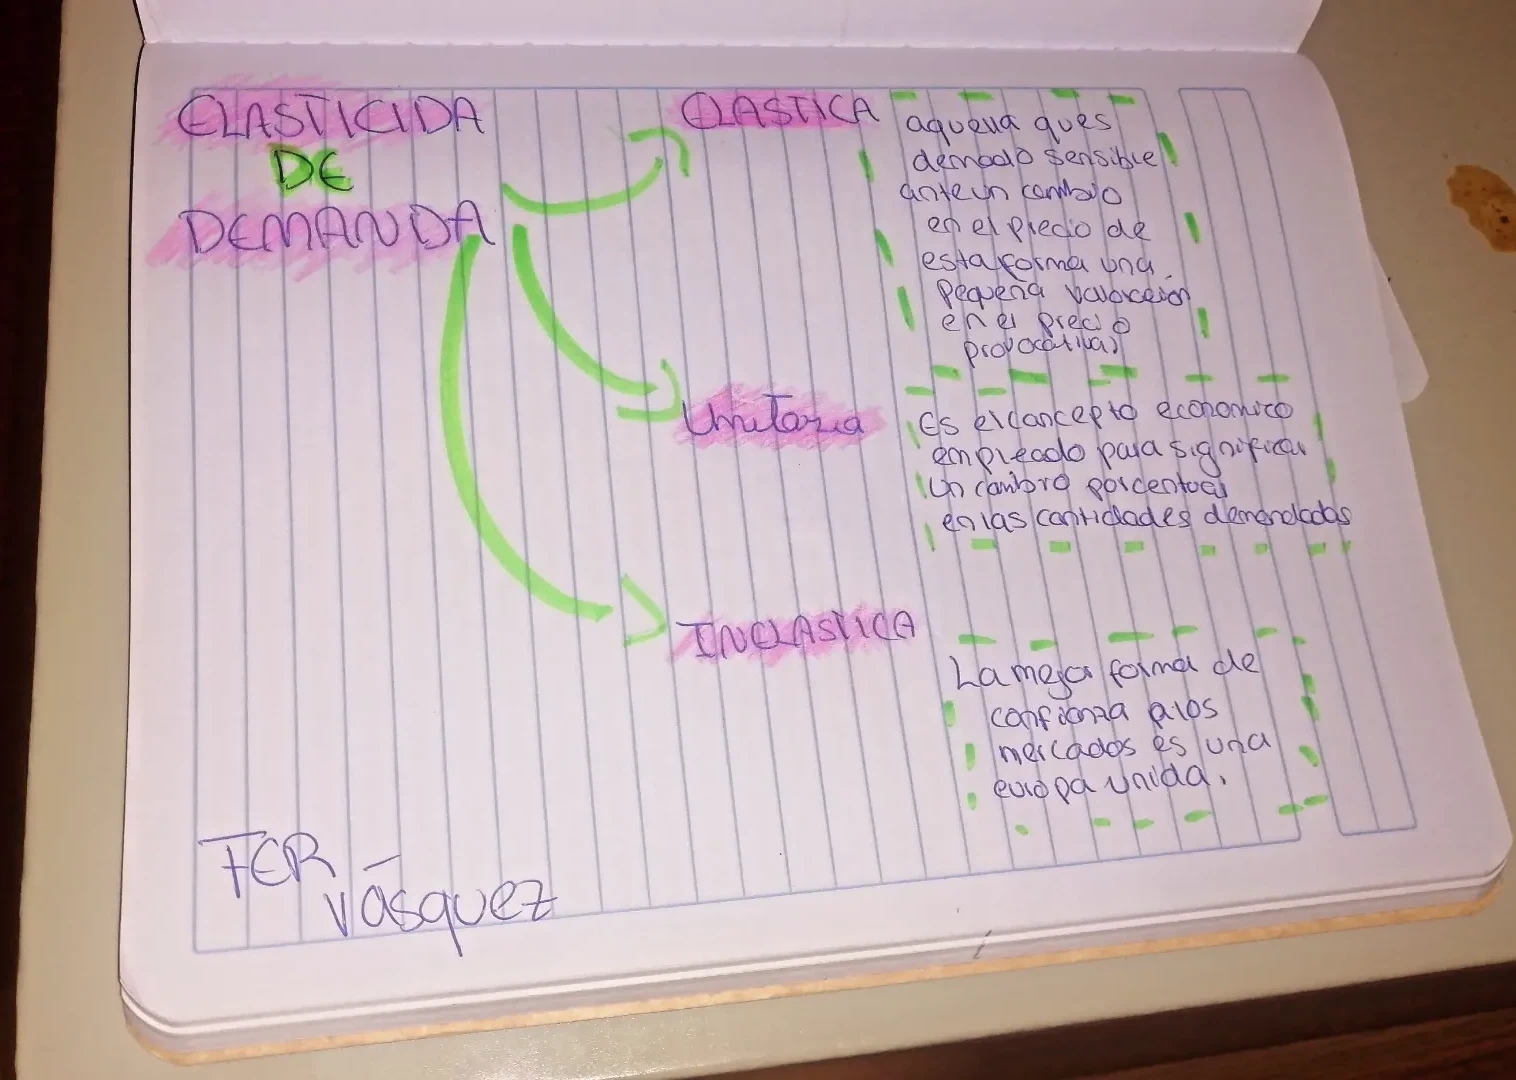 ELASTICIDA
DE
DEMANDA
ELASTICA
aquella ques
demaolo sensible
ante un cambio
en el precio de
esta forma una
pequeña
en el precio
Unitaria
Es el cancepto economico
empleado para significar
un cambio porcentual
en las cantidades demandadas
INELASTICA
La mejor forma de
confianza a los
mercados es una
europa unida.
FER
Vásquez